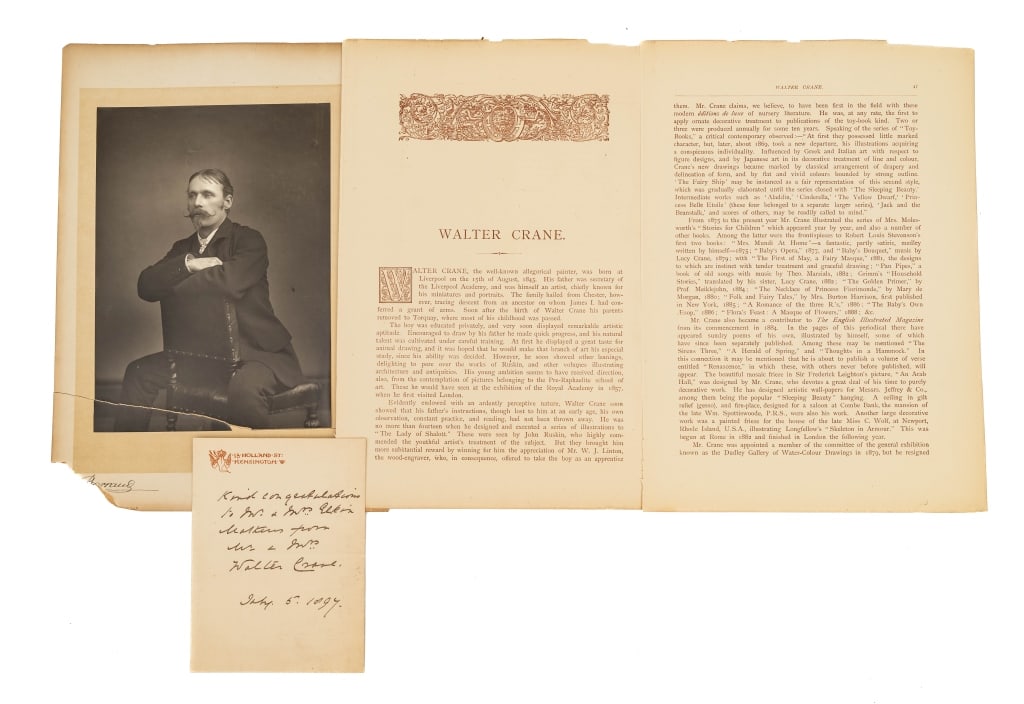 WALTER CRANE.
WALTER CRANE, the well-known allegorical painter, was born at
Liverpool on the 15th of August, 1845. His father was secretary of
the Liverpool Academy, and was himself an artist, chiefly known for
his miniatures and portraits. The family hailed from Chester, how-
ever, tracing descent from an ancestor on whom James I. had con-
ferred a grant of arms. Soon after the birth of Walter Crane his parents
removed to Torquay, where most of his childhood was passed.
The boy was educated privately, and very soon displayed remarkable artistic
aptitude. Encouraged to draw by his father he made quick progress, and his natural
talent was cultivated under careful training. At first he displayed a great taste for
animal drawing, and it was hoped that he would make that branch of art his especial
study, since his ability was decided. However, he soon showed other leanings,
delighting to pore over the works of Ruskin, and other volumes illustrating
architecture and antiquities. His young ambition seems to have received direction,
also, from the contemplation of pictures belonging to the Pre-Raphaelite school of
art. These he would have seen at the exhibition of the Royal Academy in 1857,
when he first visited London.
Evidently endowed with an ardently perceptive nature, Walter Crane soon
showed that his father's instructions, though lost to him at an early age, his own
observation, constant practice, and reading, had not been thrown away. He was
no more than fourteen when he designed and executed a series of illustrations to
"The Lady of Shalott." These were seen by John Ruskin, who highly com-
mended the youthful artist's treatment of the subject. But they brought him
more substantial reward by winning for him the appreciation of Mr. W. J. Linton,
the wood-engraver, who, in consequence, offered to take the boy as an apprentice
WALTER CRANE. 41
them. Mr. Crane claims, we believe, to have been first in the field with these
modern éditions de luxe of nursery literature. He was, at any rate, the first to
apply ornate decorative treatment to publications of the toy-book kind. Two or
three were produced annually for some ten years. Speaking of the series of "Toy-
Books," a critical contemporary observed:—"At first they possessed little marked
character, but, later, about 1869, took a new departure, his illustrations acquiring
a conspicuous individuality. Influenced by Greek and Italian art with respect to
figure designs, and by Japanese art in its decorative treatment of line and colour,
Crane's new drawings became marked by classical arrangement of drapery and
delineation of form, and by flat and vivid colours bounded by strong outline.
'The Fairy Ship' may be instanced as a fair representation of this second style,
which was gradually elaborated until the series closed with 'The Sleeping Beauty.'
Intermediate works such as 'Aladdin,' 'Cinderella,' 'The Yellow Dwarf,' 'Prin-
cess Belle Etoile' (these four belonged to a separate larger series), 'Jack and the
Beanstalk,' and scores of others, may be readily called to mind."
From 1875 to the present year Mr. Crane illustrated the series of Mrs. Moles-
worth's "Stories for Children" which appeared year by year, and also a number of
other books. Among the latter were the frontispieces to Robert Louis Stevenson's
first two books: "Mrs. Mundi At Home"—a fantastic, partly satiric, medley
written by himself—1875; "Baby's Opera," 1877, and "Baby's Bouquet," music by
Lucy Crane, 1879; with "The First of May, a Fairy Masque," 1881, the designs
to which are instinct with tender treatment and graceful drawing; "Pan Pipes," a
book of old songs with music by Theo. Marzials, 1882; Grimm's "Household
Stories," translated by his sister, Lucy Crane, 1882; "The Golden Primer," by
Prof. Meiklejohn, 1884; "The Necklace of Princess Fiorimonde," by Mary de
Morgan, 1880; "Folk and Fairy Tales," by Mrs. Burton Harrison, first published
in New York, 1885; "A Romance of the three R.'s," 1886; "The Baby's Own
Æsop," 1886; "Flora's Feast: A Masque of Flowers," 1888; &c.
Mr. Crane also became a contributor to The English Illustrated Magazine
from its commencement in 1884. In the pages of this periodical there have
appeared sundry poems of his own, illustrated by himself, some of which
have since been separately published. Among these may be mentioned "The
Sirens Three," "A Herald of Spring," and "Thoughts in a Hammock." In
this connection it may be mentioned that he is about to publish a volume of verse
entitled "Renascence," in which these, with others never before published, will
appear. The beautiful mosaic frieze in Sir Frederick Leighton's picture, "An Arab
Hall," was designed by Mr. Crane, who devotes a great deal of his time to purely
decorative work. He has designed artistic wall-papers for Messrs. Jeffrey & Co.,
among them being the popular "Sleeping Beauty" hanging. A ceiling in gilt
relief (gesso), and fire-place, designed for a saloon at Combe Bank, the mansion of
the late Wm. Spottiswoode, P.R.S., were also his work. Another large decorative
work was a painted frieze for the house of the late Miss C. Wolf, at Newport,
Rhode Island, U.S.A., illustrating Longfellow's "Skeleton in Armour." This was
begun at Rome in 1882 and finished in London the following year.
Mr. Crane was appointed a member of the committee of the general exhibition
known as the Dudley Gallery of Water-Colour Drawings in 1879, but he resigned
13 HOLLAND ST:
KENSINGTON W
Kind congratulations
to Mr. & Mrs Elkin
Mathews from
Mr & Mrs
Walter Crane.
July. 5. 1897.